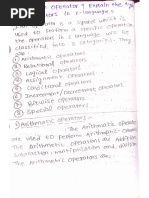 operator ? Explain the
in c-language.
operator is a symbol which is
used to perform a specific operation
the operator in c language will be
classified into 8 categories. They
are
① Arithmetic operators
② Relational operators
③ Logical operators
④ Assignment operators
⑤ Conditional operators
⑥ Increment/Decrement operators
⑦ Bitwise operators
⑧ Special operators
① Arithmetic operators :-
The Arithmetic operators
are used to perform Arithmetic
The Arithmetic operators are Addition
Subtraction, multiplication and
The Arithmetic operators are.